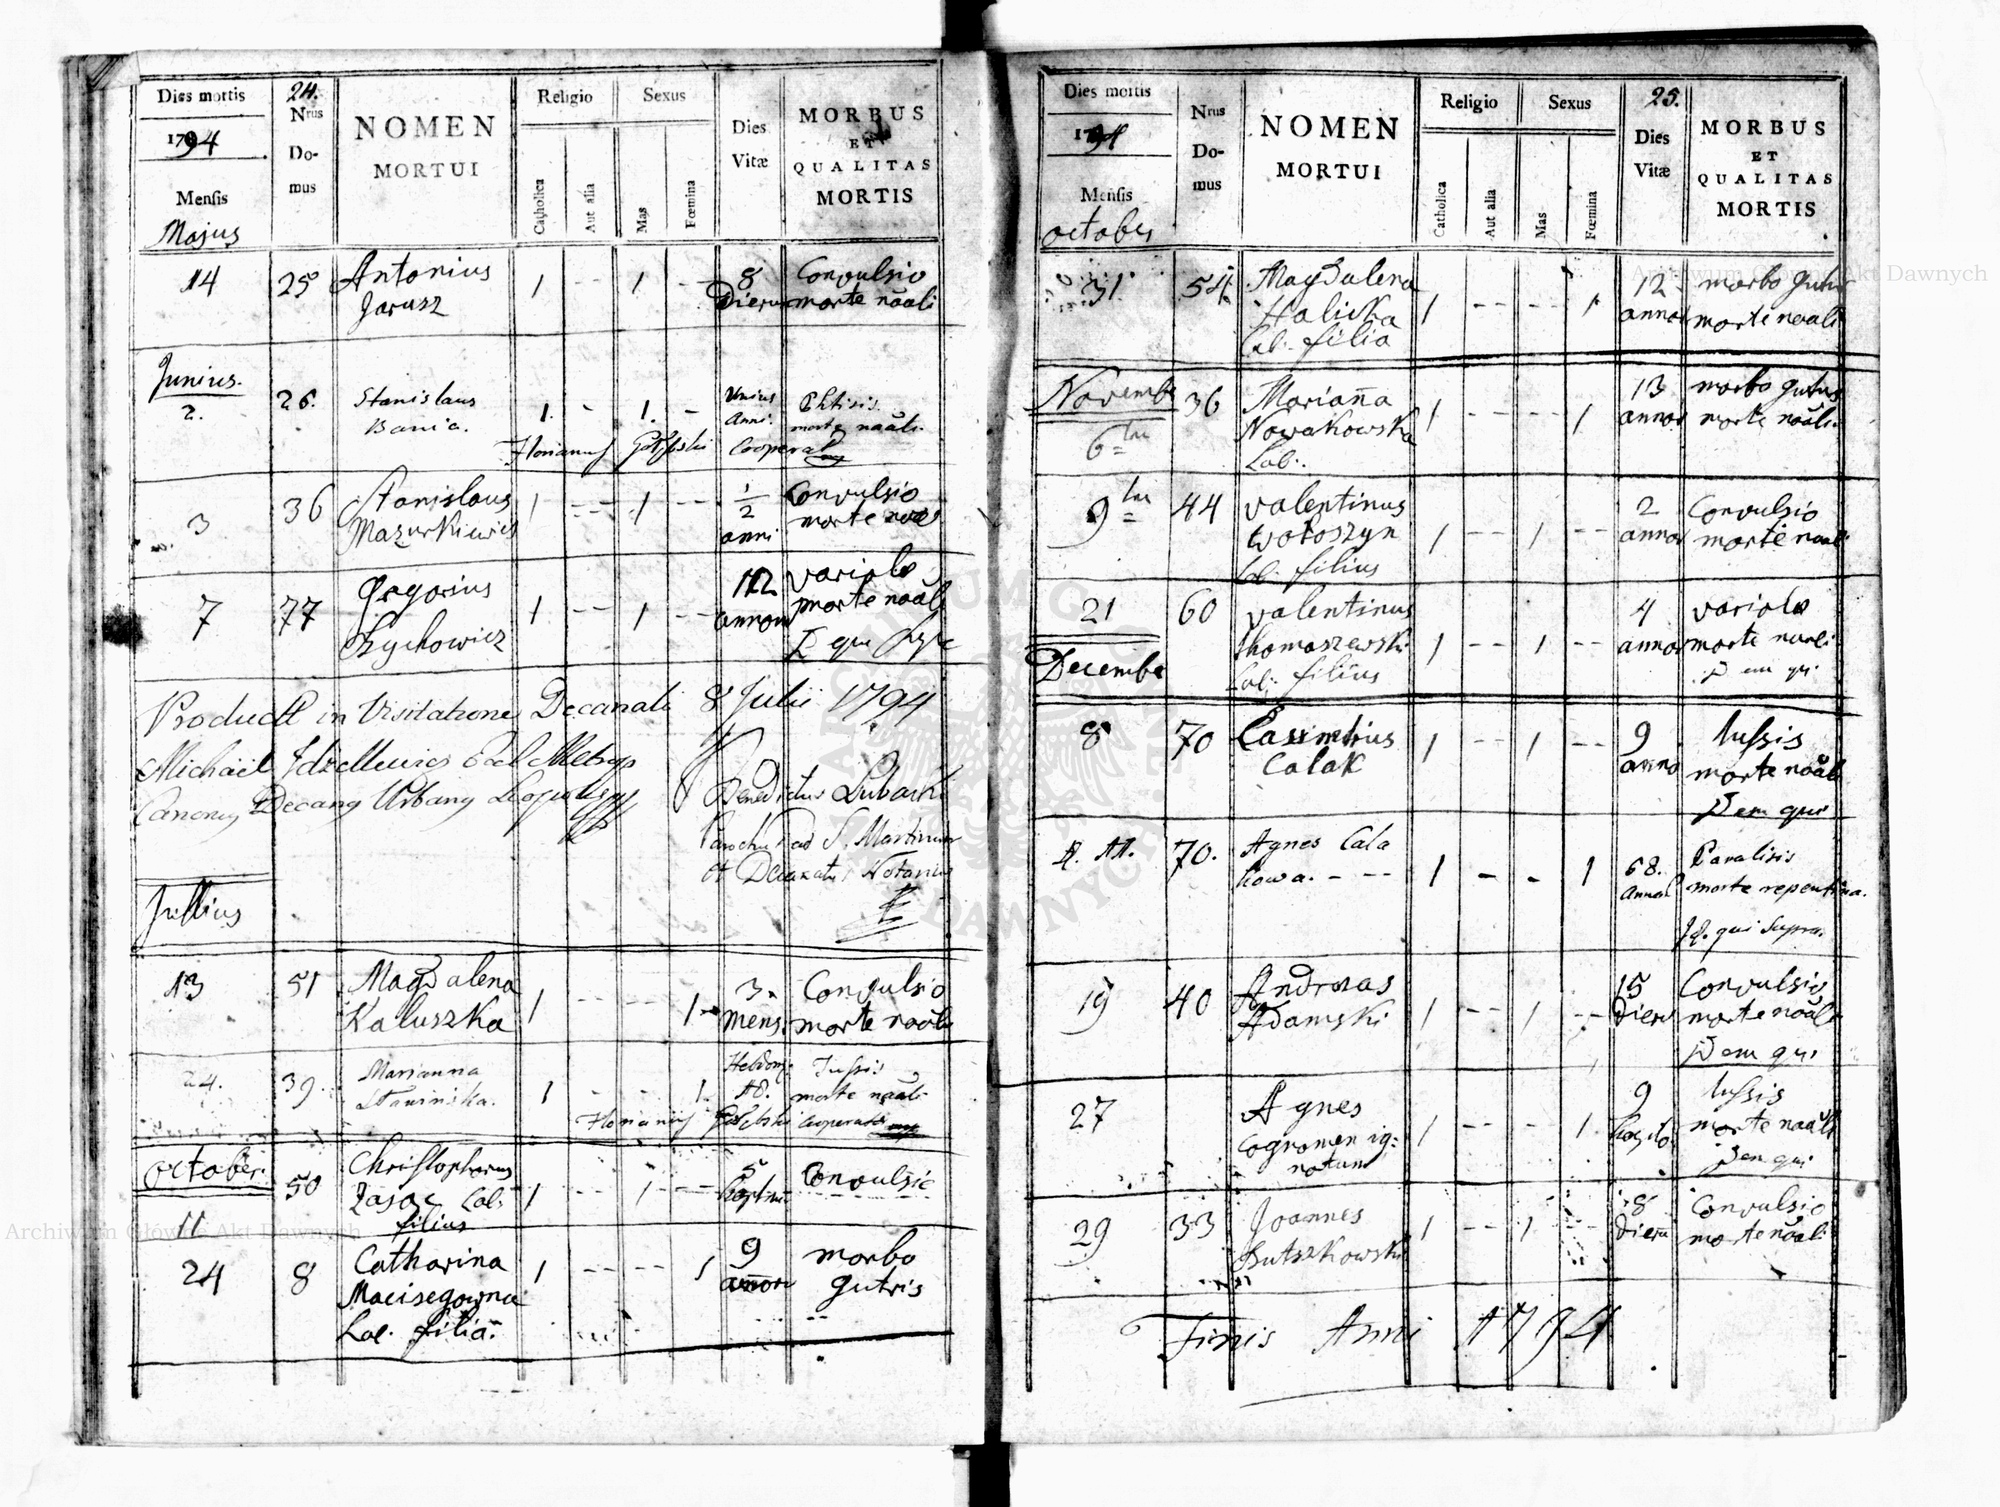 Dies mortis
1794
Mensis
Majus
24.
Nrus
Do-
mus
NOMEN
MORTUI
Religio
Catholica
Aut alia
Sexus
Mas
Fœmina
Dies
Vitæ
MORBUS
ET
QUALITAS
MORTIS
14 25 Antonius 1 -- 1 -- 8 Convulsio
Jarusz Dierum morte nâali
Junius.
2. 26. Stanislaus 1. - 1. - Unius Phtisis
Bania. Anni. morte nâali.
Florianus Cooperat
3 36 Stanislaus 1 -- 1 -- 1/2 Convulsio
Mazurkiewicz anni morte
7 77 Gregorius 1 -- 1 -- 12 variola
Rychowicz annorum morte nâali
qui
Product in Visitatione Decanali 8 Julii 1794
Michaël
Decanus Urbanus
Benedictus
Parochus ad S. Martinum
et Decanatus Notarius
Jullius
13 51 Magdalena 1 -- -- 1 3. Convulsio
Kaluszka mens: morte nâali
24. 39. Marianna 1 - - 1. Hebdom: Tussis
18. morte nâali
Florianus Cooperat
October. 50 Christophorus 1 -- 1 -- 5 Convulsio
Zając Lab:
11 filius
24 8 Catharina 1 -- -- 1 9 morbo
annorum Gutris
Lab. filia.
Dies mortis
1794
Mensis
october
Nrus
Do-
mus
NOMEN
MORTUI
Religio
Catholica
Aut alia
Sexus
Mas
Fœmina
25.
Dies
Vitæ
MORBUS
ET
QUALITAS
MORTIS
31. 54 Magdalena 1 -- -- 1 12 morbo Gutris
Halicka annor morte nâali
Lab: filia
Novembr 36 Mariañna 1 -- -- 1 13 morbo gutris
6 Nowakowska annor morte nâali
Lab:.
9 44 valentinus 1 -- 1 -- 2 Convulsio
Wołoszyn annor morte nâali
Lab. filius
21 60 valentinus 1 -- 1 -- 4 variola
Thomaszewski annor morte nâali
Decembr Lab: filius Idem qui
8 70 Casimirus 1 -- 1 -- 9 tussis
Calak anno morte nâali
Idem qui
70. Agnes Cala 1 - - 1 68. Paralisis
kowa. - -- Annor morte repentina.
Id. qui supra.
19 40 Andreas 1 -- 1 -- 15 Convulsio
Adamski Dierum morte nâali
Idem qui
27 Agnes 1 -- -- 1 9 tussis
Cognomen ig: morte nâali
notum Idem qui
29 33 Joannes 1 -- 1 -- 8 Convulsio
Dierum morte nâali
Finis Anni 1794
Archiwum Główne Akt Dawnych
Archiwum Główne Akt Dawnych
ARCHIWUM GŁÓWNE AKT DAWNYCH